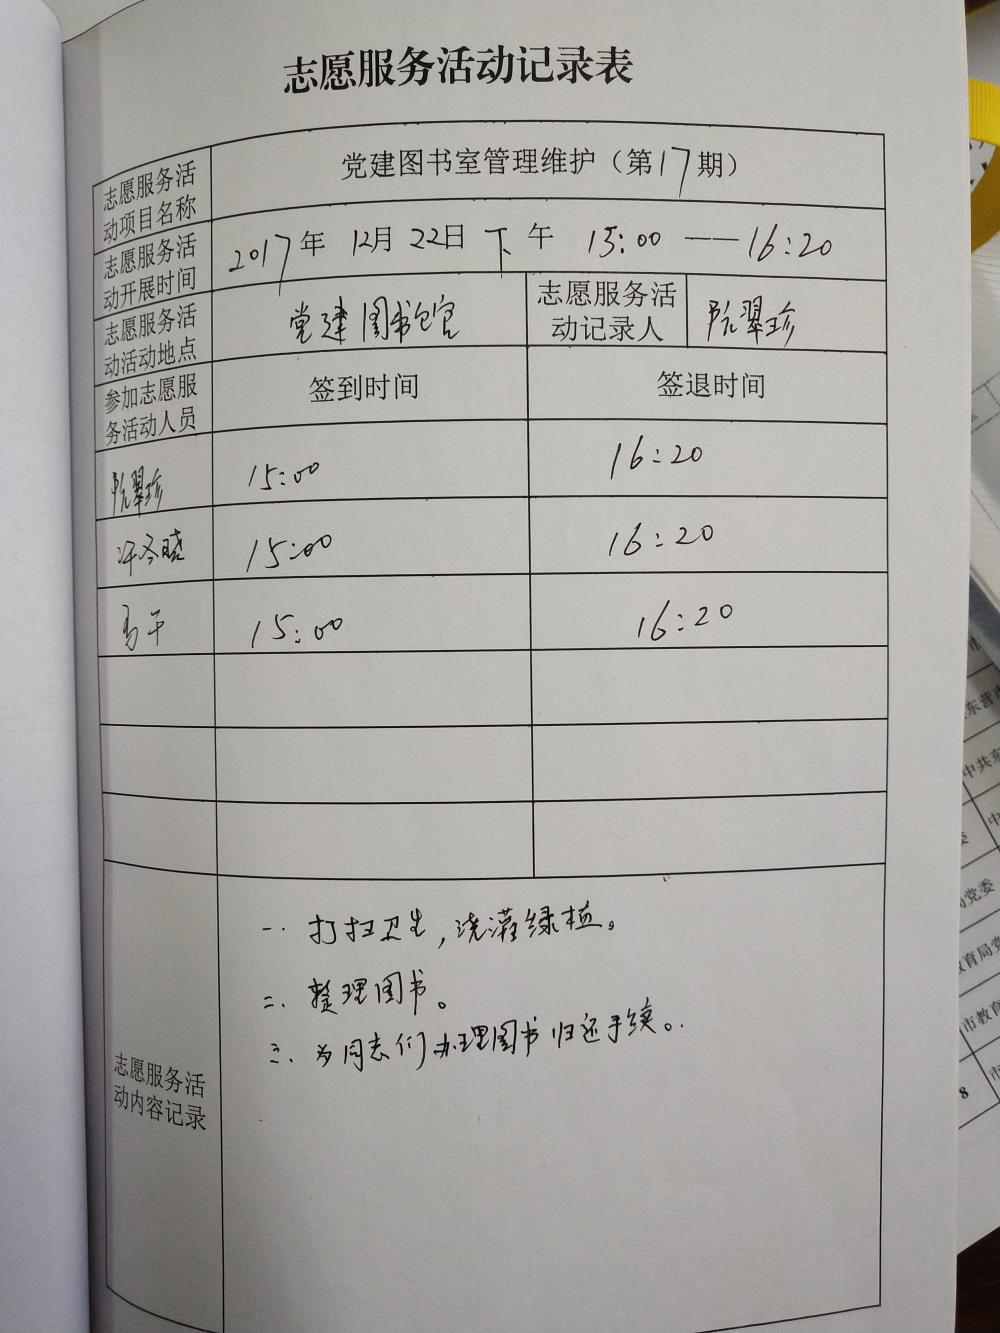 志愿服务活动记录表
志愿服务活
动项目名称
党建图书室管理维护（第17期）
志愿服务活
动开展时间
2017年 12月 22日 下午 15:00 —— 16:20
志愿服务活
动活动地点
党建图书馆
志愿服务活
动记录人
阮翠珍
参加志愿服
务活动人员
签到时间
签退时间
阮翠珍 15:00 16:20
冬晓 15:00 16:20
15:00 16:20
志愿服务活
动内容记录
一. 打扫卫生，浇灌绿植。
二. 整理图书。
三. 为同志们办理图书归还手续。
东营
中共东
中
委
党委
教育局党
市教育
8
市